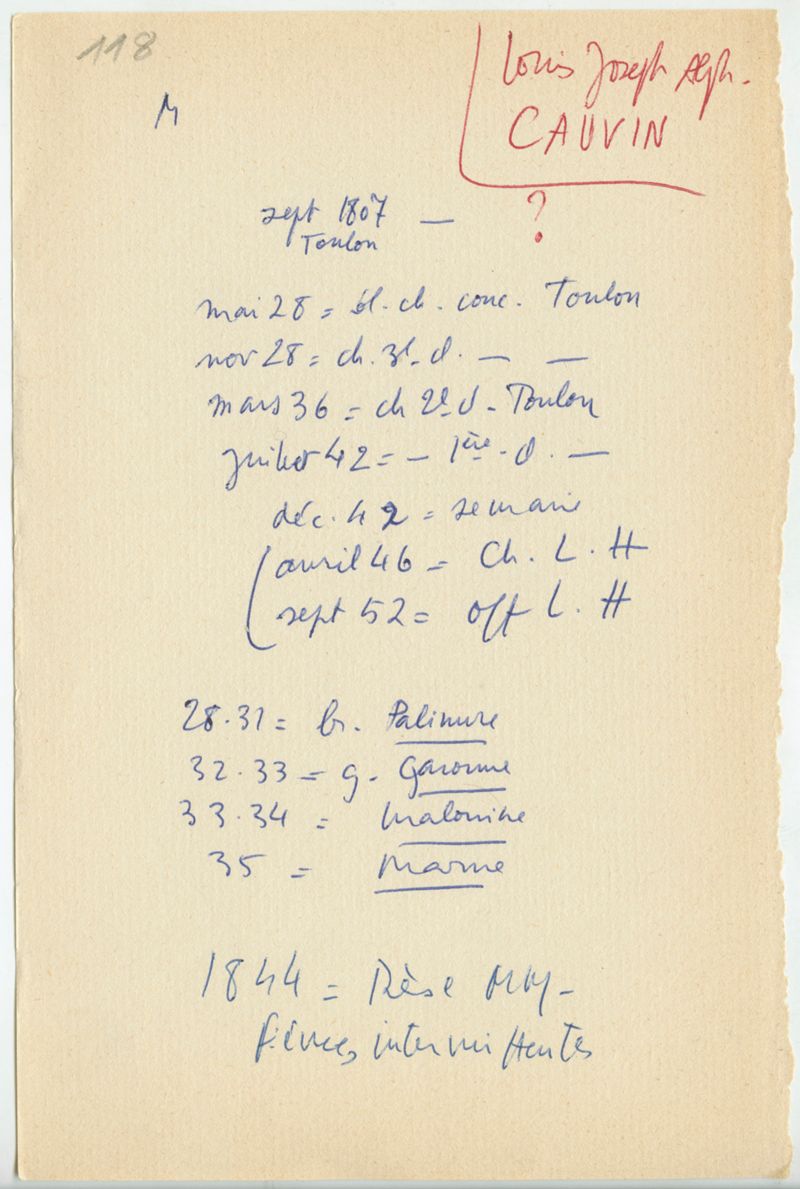 118
Louis Joseph Alph.
CAUVIN
M
sept 1807 — ?
Toulon
mai 28 = él. ch. conc. Toulon
nov 28 = ch. 3e d. — —
mars 36 = ch 2e d - Toulon
juillet 42 = — 1ère - d. —
déc. 42 = semaine
avril 46 = Ch. L. H
sept 52 = off L. H
28.31 = br. Palinure
32.33 = g. Garonne
33.34 = Malouine
35 = Marne
1844 = Thèse
fièvres intermittentes